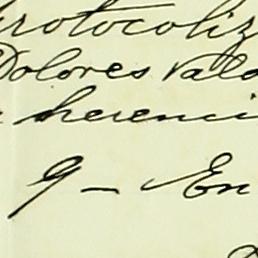 rotocoliz
Dolores Vald
herenci
9 - En